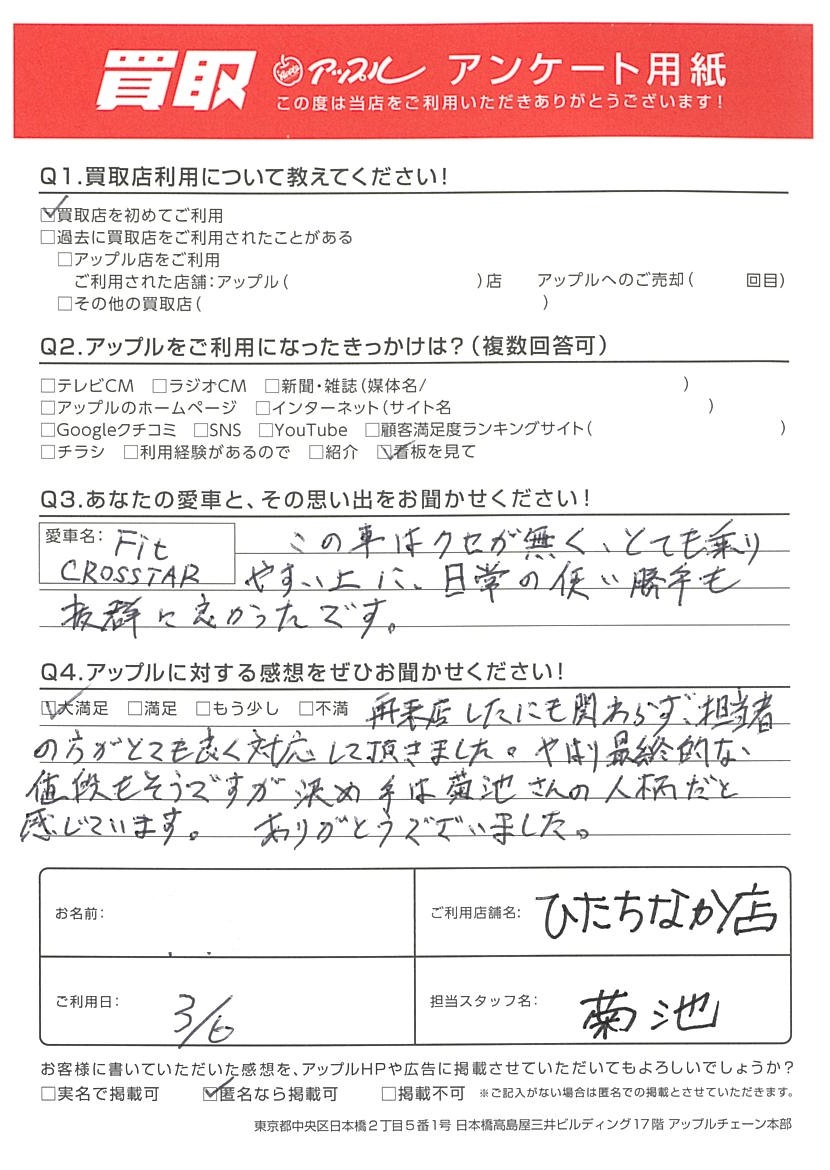 買取 Apple アップル アンケート用紙
この度は当店をご利用いただきありがとうございます!
Q1.買取店利用について教えてください!
☑買取店を初めてご利用
□過去に買取店をご利用されたことがある
□アップル店をご利用
ご利用された店舗:アップル( )店 アップルへのご売却( 回目)
□その他の買取店( )
Q2.アップルをご利用になったきっかけは?(複数回答可)
□テレビCM □ラジオCM □新聞・雑誌(媒体名/ )
□アップルのホームページ □インターネット(サイト名 )
□Googleクチコミ □SNS □YouTube □顧客満足度ランキングサイト( )
□チラシ □利用経験があるので □紹介 ☑看板を見て
Q3.あなたの愛車と、その思い出をお聞かせください!
愛車名: Fit この車はクセが無く、とても乗り
CROSSTAR やすい上に、日常の使い勝手も
抜群に良かったです。
Q4.アップルに対する感想をぜひお聞かせください!
☑大満足 □満足 □もう少し □不満 再来店したにも関わらず、担当者
の方がとても良く対応して頂きました。やはり最終的な
値段もそうですが決め手は菊池さんの人柄だと
感じています。 ありがとうございました。
お名前: ご利用店舗名: ひたちなか店
ご利用日: 3/6 担当スタッフ名: 菊池
お客様に書いていただいた感想を、アップルHPや広告に掲載させていただいてもよろしいでしょうか?
□実名で掲載可 ☑匿名なら掲載可 □掲載不可 ※ご記入がない場合は匿名での掲載とさせていただきます。
東京都中央区日本橋2丁目5番1号 日本橋高島屋三井ビルディング17階 アップルチェーン本部